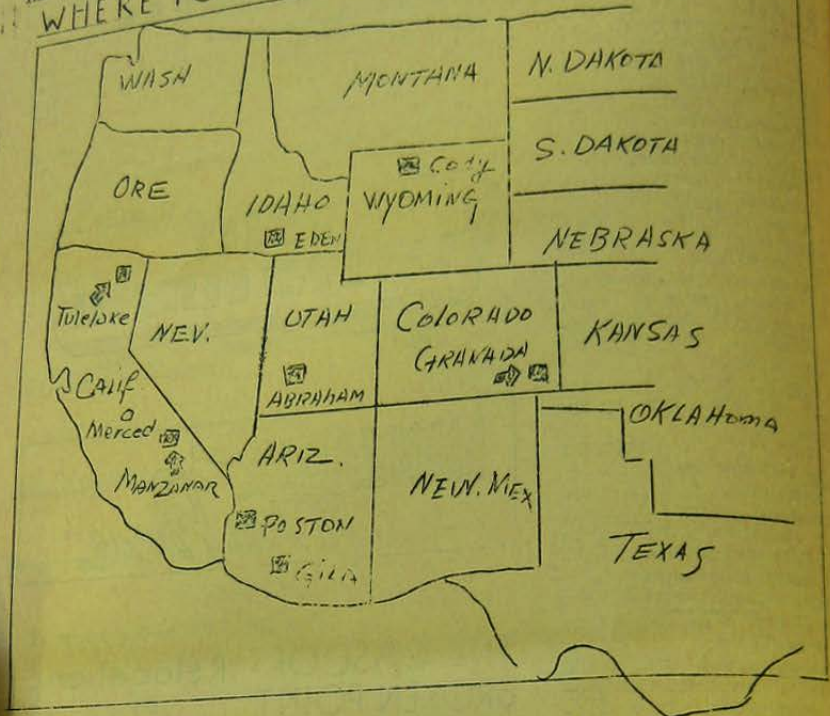 WHERE
WASH
MONTANA
N. DAKOTA
S. DAKOTA
ORE
IDAHO
Cody
WYOMING
EDEN
NEBRASKA
Tulelake
NEV.
UTAH
COLORADO
GRANADA
KANSAS
ABRAHAM
CALIF
Merced
MANZANAR
ARIZ.
NEW. MEX
OKLAHOMA
POSTON
GILA
TEXAS